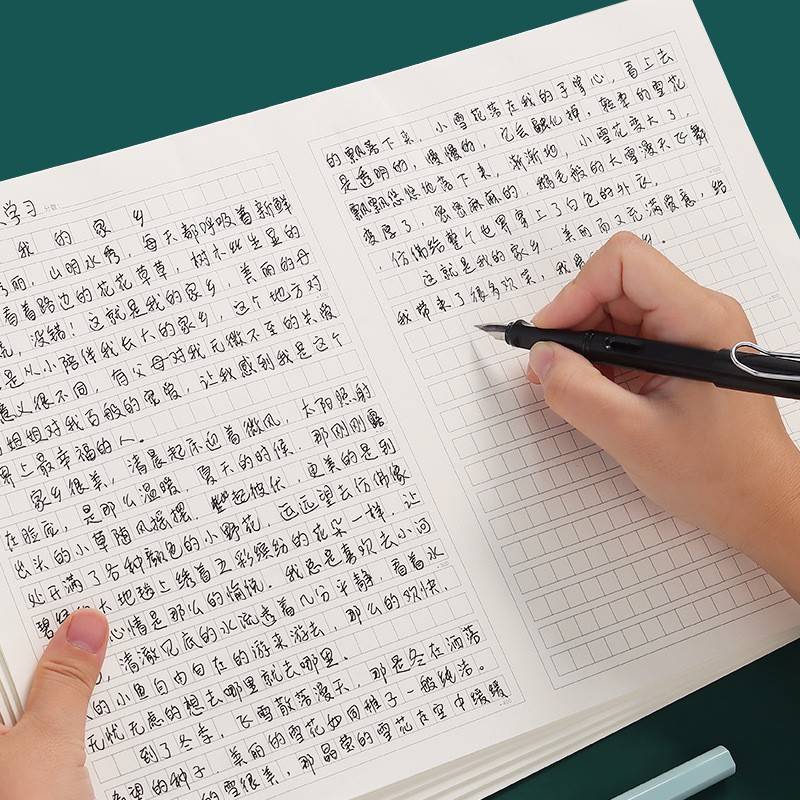 学习
我的家乡
秀丽，山明水秀，每天都呼吸着新鲜
看着路边的花花草草，树木此生显的
，没错！这就是我的家乡，美丽的母
是从小陪伴我长大的家乡，这个地方对
意义很不同，有父母对我无微不至的关爱
姐姐对我百般的宠爱，让我感到我是这个
界上最幸福的人。
家乡很美，清晨起床迎着微风，太阳照射
在脸应，是那么温暖，夏天的时候，那刚刚露
出头的小草随风摇摆，起彼伏，更美的是到
处开满了各种颜色的小野花，远远望去仿佛像
碧绿 大地毯上绣着五彩缤纷的花朵一样，让
心情是那么的愉悦。我总是喜欢去小河
，清澈见底的水流透着几分平静，看着水
的小鱼自由自在的游来游去，那么的欢快，
无忧无虑的想去哪里就去哪里。
到了冬季，飞雪散落漫天，那是冬在洒落
希望的种子，美丽的雪花如同稚子一般纯洁。
的雪很美，那晶莹的雪花在空中缓缓
的飘落下来，小雪花落在我的手掌心，看上去
是透明的，慢慢的，它会融化掉，轻柔的雪花
飘飘悠悠地落下来，渐渐地，小雪花变大了，
变厚了，密密麻麻的，鹅毛般的大雪漫天飞舞
，仿佛给整个世界穿上了白色的外衣。
这就是我的家乡，美丽而又充满爱意，给
我带来了很多欢笑，我 乡。